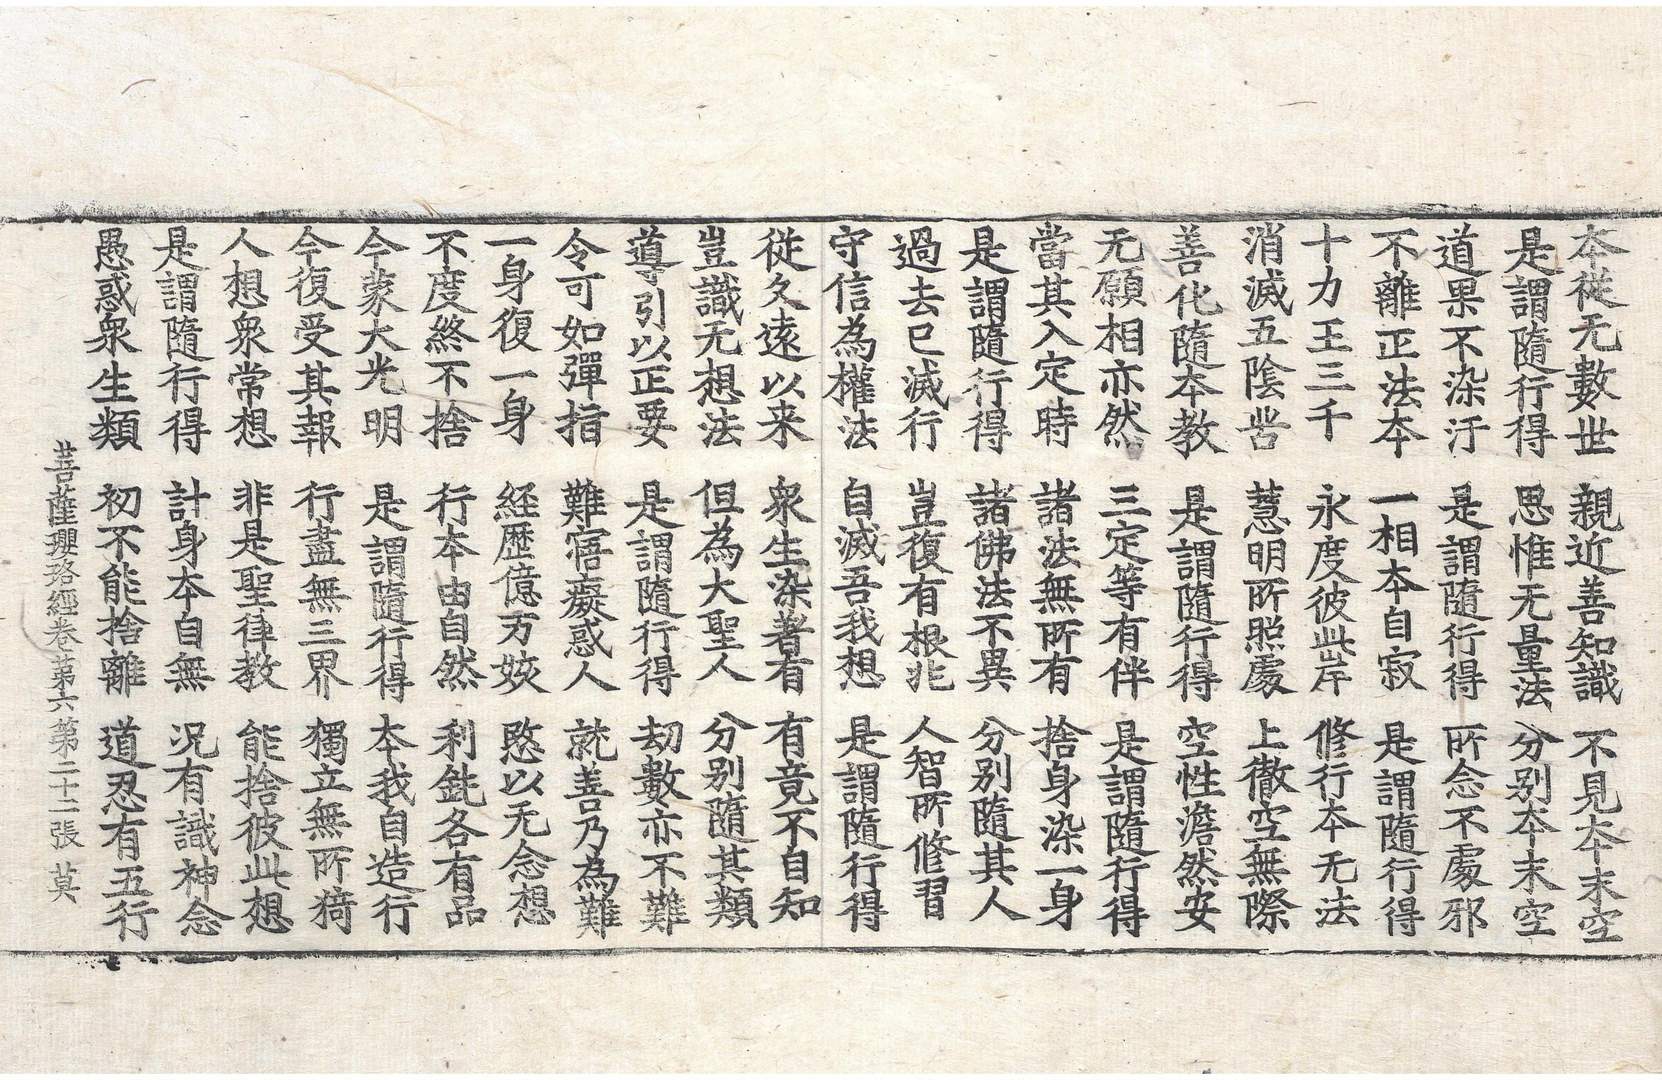 本従无數世 親近善知識 不見本末空
是謂隨行得 思惟无量法 分别本末空
道果不染汙 是謂隨行得 所念不處邪
不離正法本 一相本自寂 是謂隨行得
十力王三千 永度彼此岸 修行本无法
消滅五陰苦 慧明所照處 上徹空無際
善化隨本教 是謂隨行得 空性澹然安
无願相亦然 三定等有伴 是謂隨行得
當其入定時 諸法無所有 捨身染一身
是謂隨行得 諸佛法不異 分别隨其人
過去已滅行 豈復有根兆 人智所修習
守信為權法 自滅吾我想 是謂隨行得
従久遠以来 衆生染著有 有竟不自知
豈識无想法 但為大聖人 分别隨其類
導引以正要 是謂隨行得 劫數亦不難
令可如彈指 難寤癡惑人 就善乃為難
一身復一身 経歴億万姟 愍以无念想
不度終不捨 行本由自然 利鈍各有品
今蒙大光明 是謂隨行得 本我自造行
今復受其報 行盡無三界 獨立無所猗
人想衆常想 非是聖律教 能捨彼此想
是謂隨行得 計身本自無 况有識神念
愚惑衆生類 初不能捨離 道忍有五行
菩薩瓔珞經卷第六第二十二張 莫